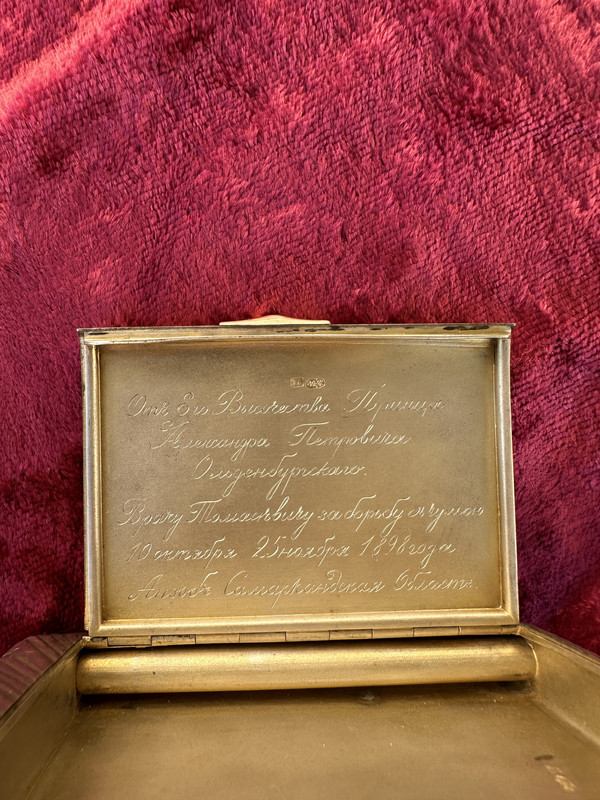 Отъ Его Высочества Принца
Александра Петровича
Ольденбургскаго.
Врачу Томасѣвичу за борьбу съ чумою
19 октября 25 ноября 1898 года
Анзобъ Самаркандская Область.